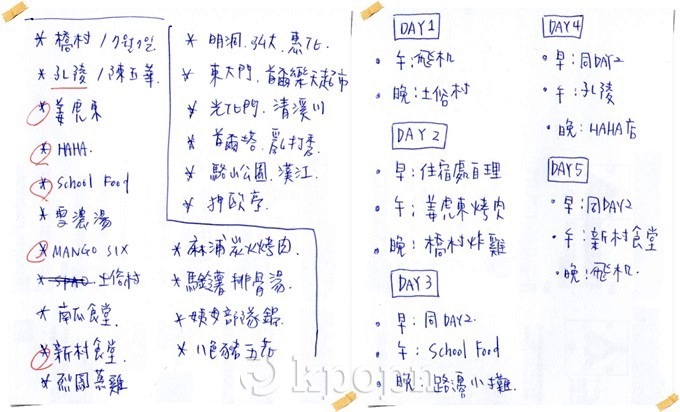 * 橋村 / 7월7일
* 孔陵 / 陳玉華
* 姜虎東
* HAHA.
* School Food
* 雪濃湯
* MANGO SIX
* SPAO 土俗村
* 南瓜食堂.
* 新村食堂
* 烈鳳蒸雞
* 明洞. 弘大. 惠化
* 東大門. 首爾樂天超市
* 光化門. 清溪川
* 首爾塔. 亂打秀.
* 駱山公園. 漢江.
* 狎歐亭.
* 麻浦炭火烤肉
* 馬鈴薯排骨湯.
* 姨母部隊鍋.
* 八色豬五花
DAY 1
• 午: 飛机
• 晚: 土俗村
DAY 2
• 早: 住宿處自理
• 午: 姜虎東烤肉
• 晚: 橋村炸雞
DAY 3
• 早: 同DAY2.
• 午: School Food
• 晚: 路邊小攤.
DAY 4
• 早: 同DAY2
• 午: 孔陵
• 晚: HAHA店
DAY 5
• 早: 同DAY2
• 午: 新村食堂
• 晚: 飛机.
kpopn